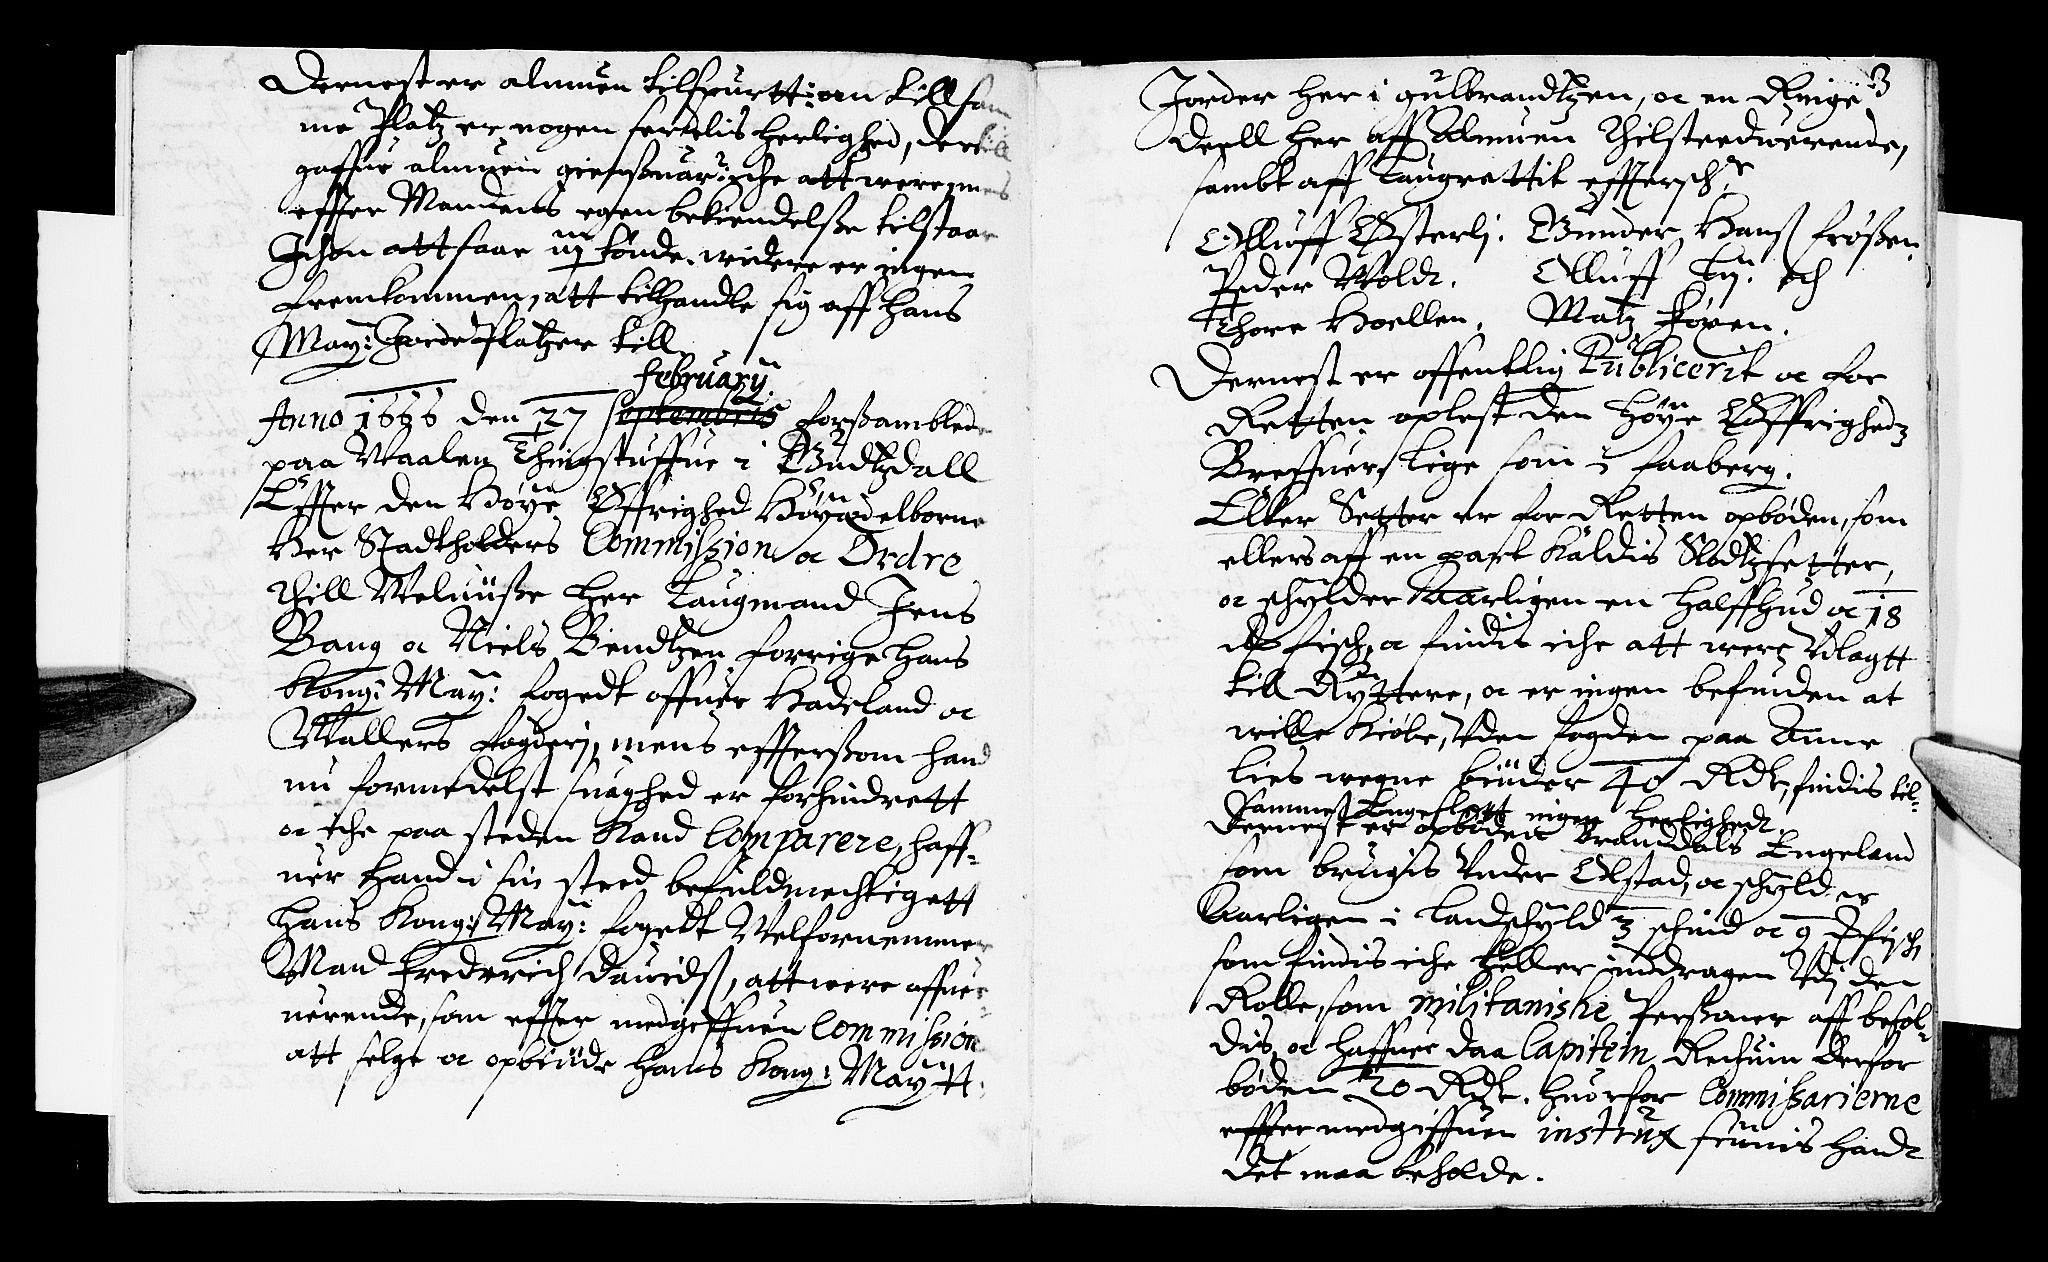 Dernest er almuen tilspurtt: om till sam
me Platz er nogen serdelis herlighed, der till
gaffue almuen giensuar: iche att were, mens
effter Mandens egen bekiendelsse tilstaar
Ichon att saae iij tønde. widere er ingen
fremkommen, att tilhandle sig aff hans
May: Jorde Platzer till
February
Anno 1666 den 27 Septembris forsamblede
paa Waalen Thingstuffue i Gudtzdall
Effter den Høye Øffrighed Høyædelborne
Her Stadtholders Commission oc Ordre
Thill Weluiisse Her Laugmand Jens
Bang oc Niels Bendtzen forrige hans
Kong: May: fogedt offuer Hadeland oc
Wallers fogderj, mens effterssom hand
nu formedelst suaghed er forhindrett
oc iche paa steden Kand Comparere, haff-
uer hand i sin sted befuldmechtigett
hans Kong: May: fogett Welfornemme
Mand Frederich Dauidss, att were offuer
uerende, som effter medgiffuen Commission
att selge oc opbiude hans Kong: Maytt:
3
Jorder her i gulbrandtzen, oc en Ringe
deell her aff Almuen Thilstedwerende,
sambt aff Laugrettit effterschr
Olluff Østerlj. Gunder Hans frøssen
Peder Woldt. Olluff Lij. och
Thore Hoellen. Matz Køpen.
Dernest er offentlig Publicerit oc for
Retten oplest den Høye Øffrighedz
Breffuer, lige som i faaberg.
Elker Setter er for Retten opbøden, som
ellers aff en part Kaldis Slodtzsetter,
oc schylder Aarligen en halff hud oc 18
fisch, oc findis iche att were Vdlagtt
till Ryttere, oc er ingen befunden at
wille Kiøbe, Vden fogden paa Anne
lies wegne biuder 40 Rdr, findis til-
Samme Engeslott ingen Herlighedt
Dernest er opbøden Bramdals Engeland
som brugis Vnder Olstad, oc schyld er
Aarligen i Landschyld 3 schind oc 9 fisch
som findis iche heller inddragen Vdj den
Rolle, som militanishe Perssoner aff besol-
dis, oc haffuer daa Capitein Rechuin derfor
bøden 20 Rdr. huorfor Commissarierne
effter medgiffuen instrux siunis handt
det maa beholde.